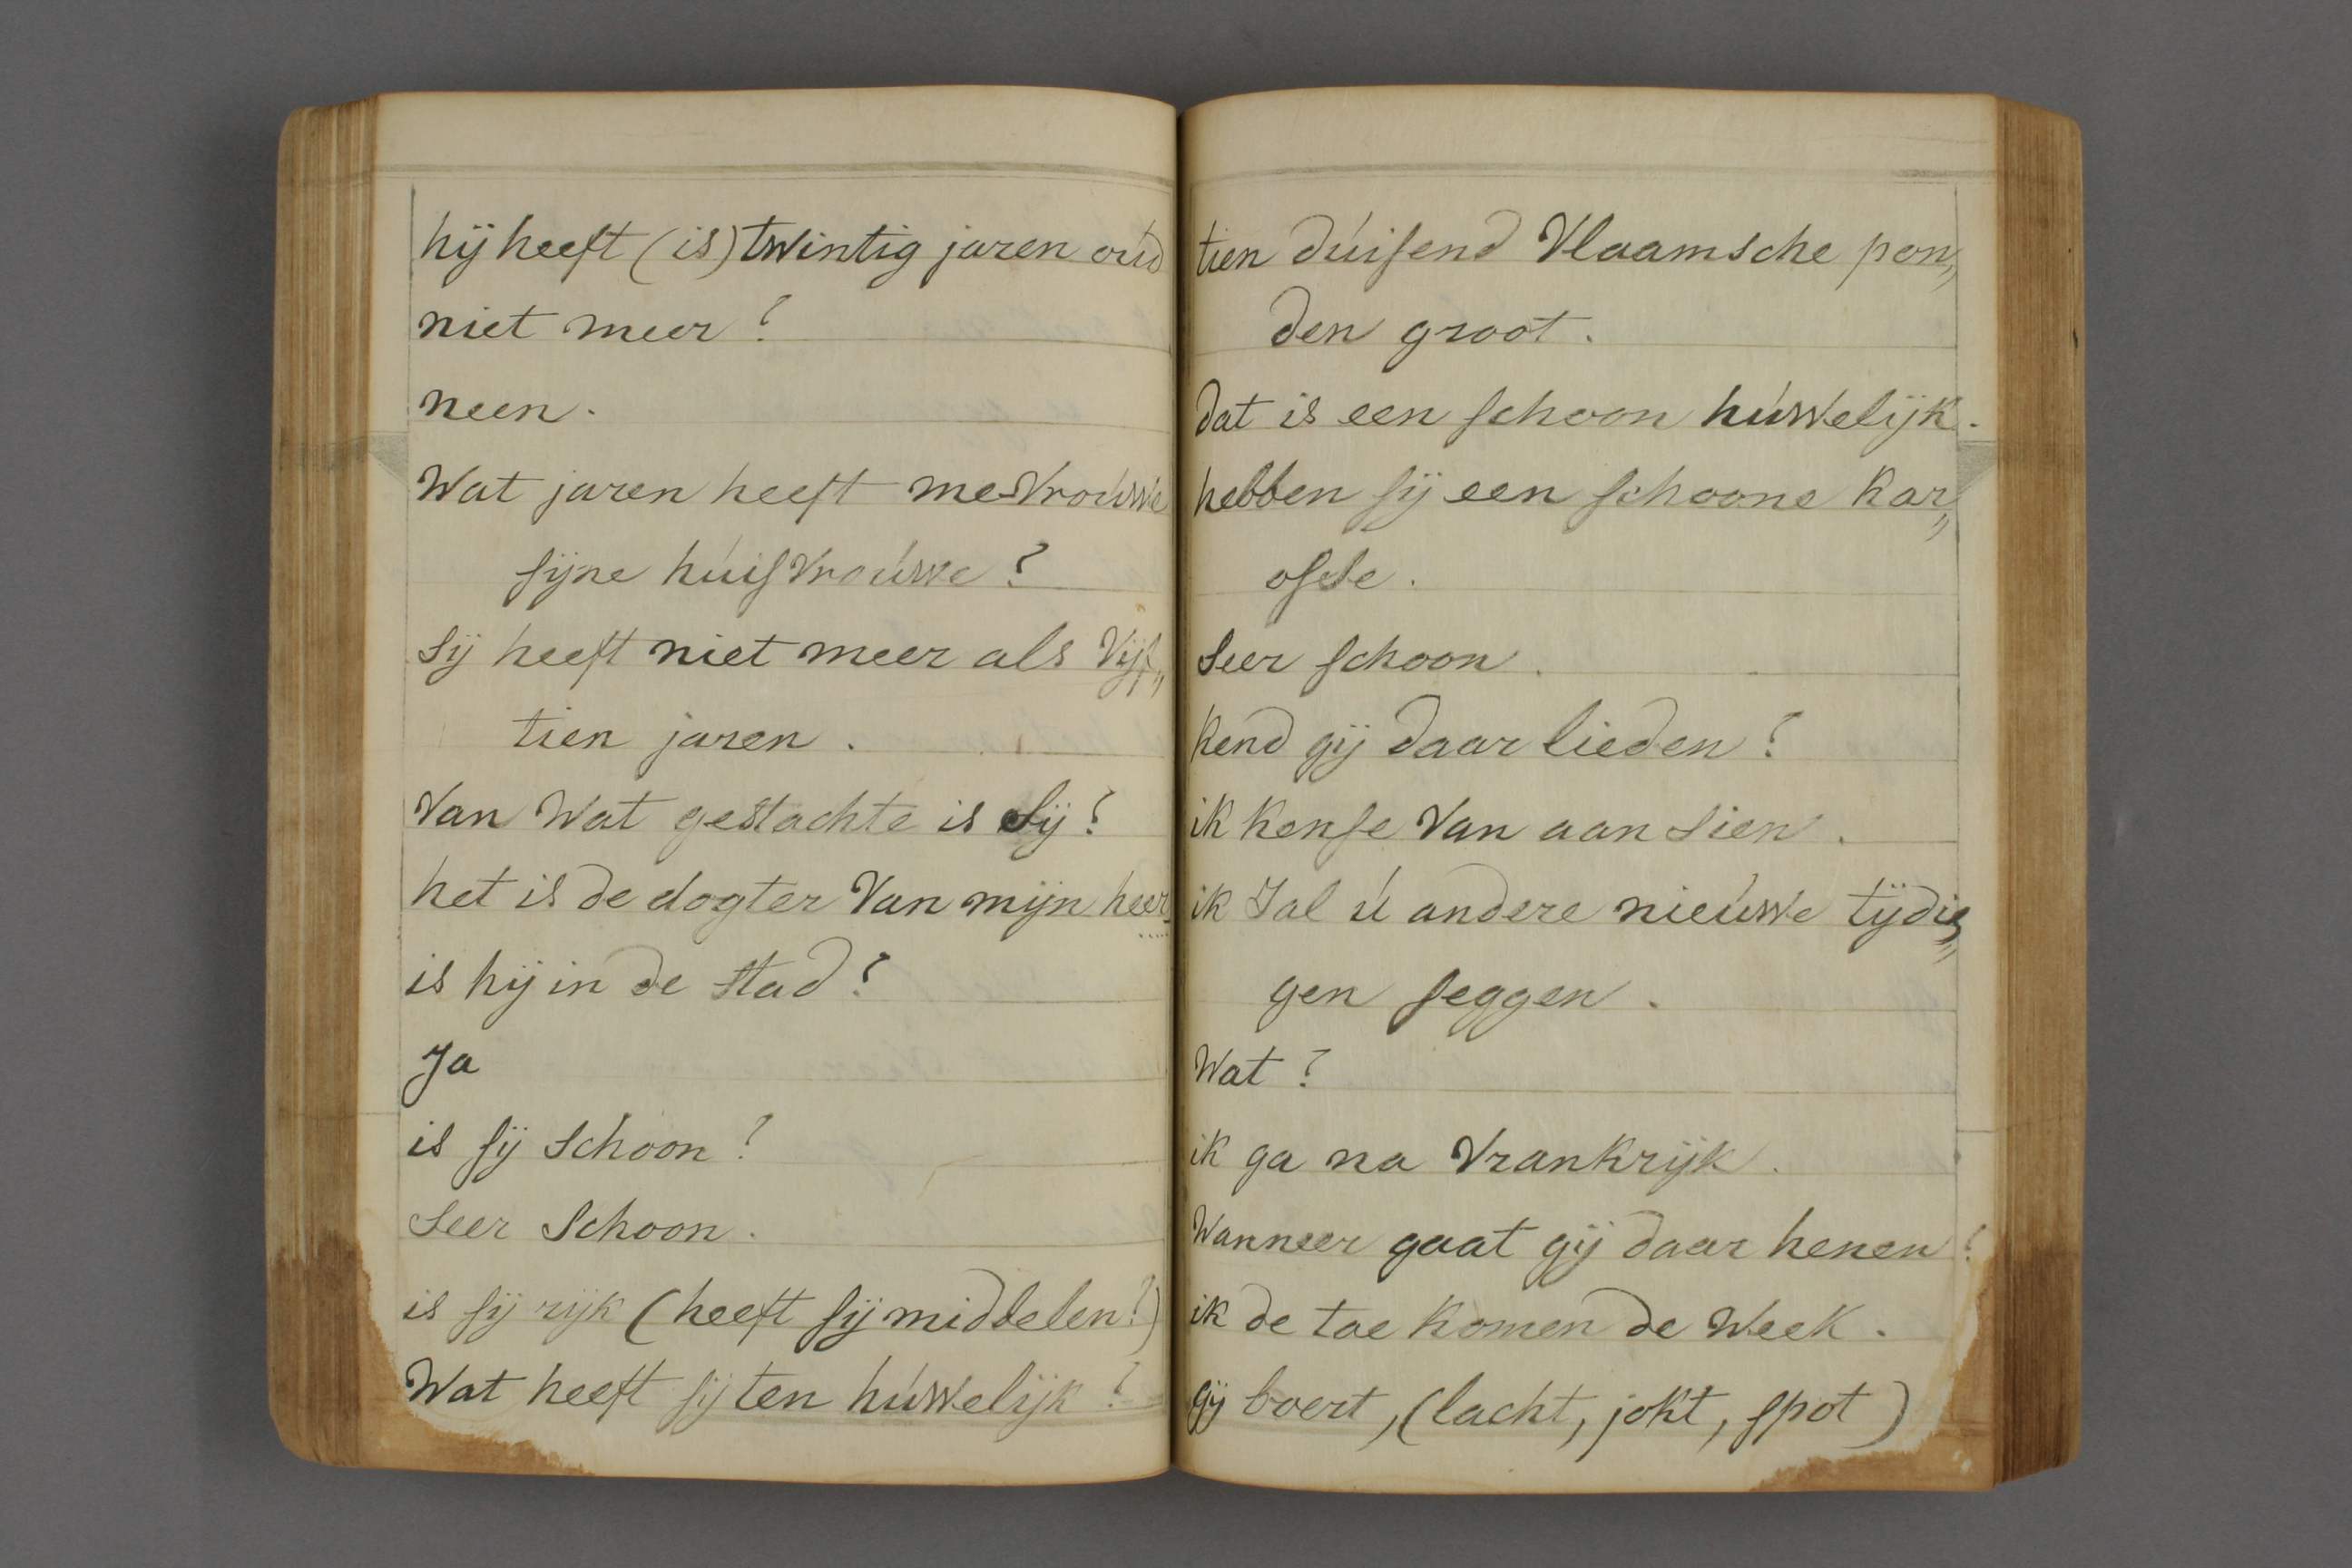 hij heeft (is) twintig jaren oúd
niet meer?
neen.
Wat jaren heeft me-Vroúwe
sijne húisVroúwe?
Sij heeft niet meer als Vijf„
tien jaren.
Van Wat geslachte is Sij?
het is de dogter Van mijn heer
is hij in de stad?
Ja
is sij Schoon?
Seer Schoon.
is sij rijk (heeft sij middelen?)
Wat heeft sij ten húwelijk?
tien dúisend Vlaamsche pon„
den groot.
dat is een schoon húwelijk.
hebben sij een schoone Kar„
osse.
Seer schoon.
Kend gij daar lieden?
ik Kense Van aan sien.
ik Sal ú andere nieúwe tijdig„
gen seggen.
Wat?
ik ga na VranKrijk.
Wanneer gaat gij daar henen?
ik de toe Komen de Week.
gij boert, (lacht, jokt, spot)